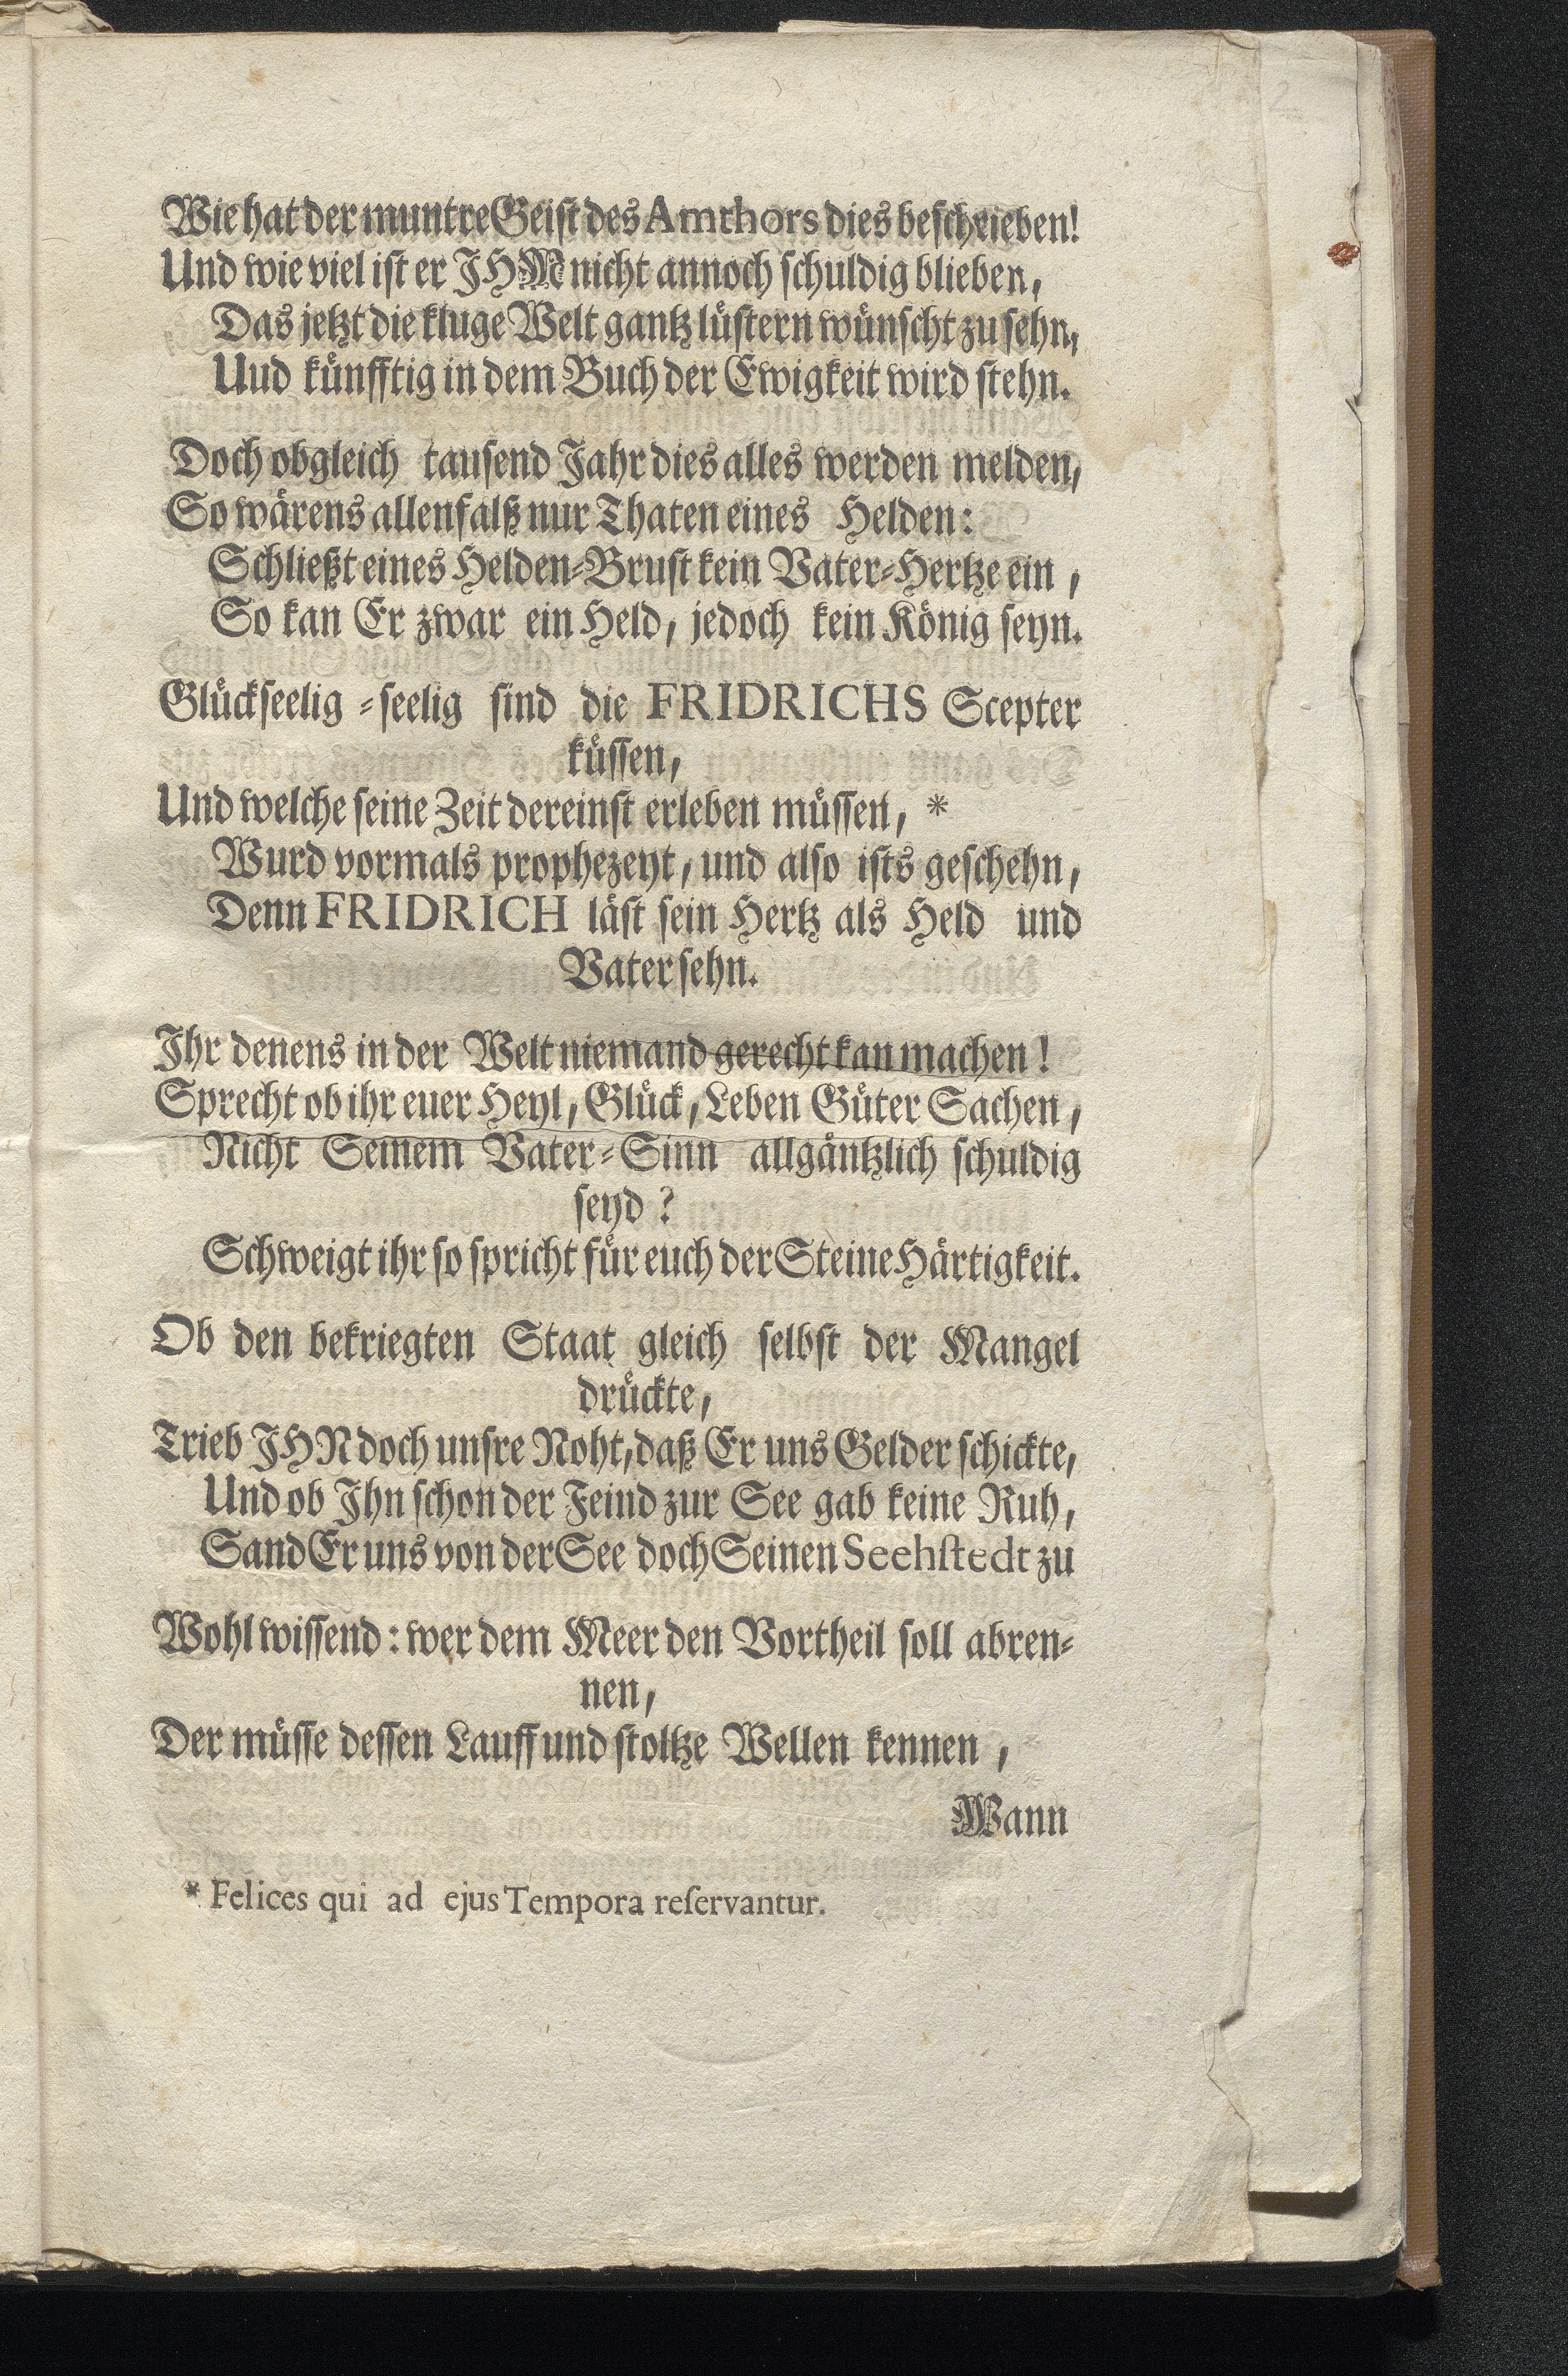 Wie hat der muntre Geist des Amthors dies beschrieben!
Und wie viel ist er JHM nicht annoch schuldig blieben,
Das jetzt die kluge Welt gantz lüstern wünscht zu sehn,
Uud künfftig in dem Buch der Ewigkeit wird stehn.
Doch obgleich tausend Jahr dies alles werden melden,
So wärens allenfalß nur Thaten eines Helden:
Schließt eines Helden-Brust kein Vater-Hertze ein,
So kan Er zwar ein Held, jedoch kein König seyn.
Glückseelig-seelig sind die FRIDRICHS Scepter
küssen,
Und welche seine Zeit dereinst erleben müssen, *
Wurd vormals prophezeyt, und also ists geschehn,
Denn FRIDRICH läst sein Hertz als Held und
Vater sehn.
Ihr denens in der Welt niemand gerecht kan machen!
Sprecht ob ihr euer Heyl, Glück, Leben Güter Sachen,
Nicht Seinem Vater-Sinn allgäntzlich schuldig
seyd?
Schweigt ihr so spricht für euch der Steine Härtigkeit.
Ob den bekriegten Staat gleich selbst der Mangel
drückte,
Trieb JHN doch unsre Noht, daß Er uns Gelder schickte,
Und ob Ihn schon der Feind zur See gab keine Ruh,
Sand Er uns von der See doch Seinen Seehstedt zu
Wohl wissend: wer dem Meer den Vortheil soll abren-
nen,
Der müsse dessen Lauff und stoltze Wellen kennen,
Wann
* Felices qui ad ejus Tempora reservantur.
2